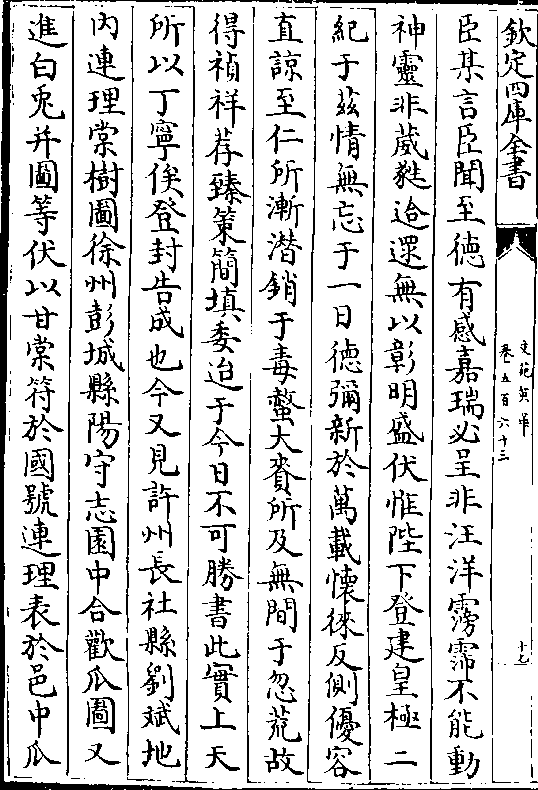 欽定四庫全書
文苑英華
卷五百六十三
十九
臣某言臣聞至徳有感嘉瑞必呈非汪洋霶霈不能動
神靈非葳蕤迨遝無以彰明盛伏惟陛下登建皇極二
紀于兹情無忘于一日徳彌新於萬載懷徠反側優容
直諒至仁所漸潜銷于毒螫大賚所及無間于忽荒故
得禎祥荐臻策簡填委迨于今日不可勝書此實上天
所以丁寧俟登封告成也今又見許州長社縣劉斌地
内連理棠樹圖徐州彭城縣陽守志園中合歡瓜圖又
進白兎并圖等伏以甘棠符於國號連理表於邑中瓜